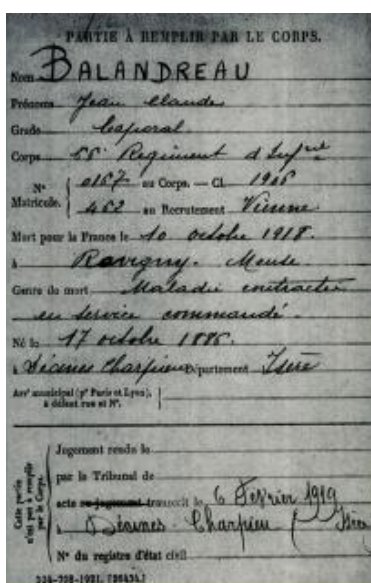 PARTIE À REMPLIR PAR LE CORPS.
Nom BALANDREAU
Prénoms Jean Claude
Grade Caporal
Corps 55 Regiment d Infrie
N° Matricule. 0167 au Corps. — Cl. 1906
462 au Recrutement Vienne
Mort pour la France le 10 octobre 1918.
à Meuse
Genre de mort Maladie contractée
en service commandé.
Né le 17 octobre 1886.
à Décines Charpieu Département Isère
Arrt municipal (pr Paris et Lyon), à défaut rue et N°.
Cette partie n'est pas à remplir par le Corps.
Jugement rendu le
par le Tribunal de
acte ou jugement transcrit le 6 Février 1919
à Décines Charpieu (Isère
N° du registre d'état civil
534-708-1921. [26434.]